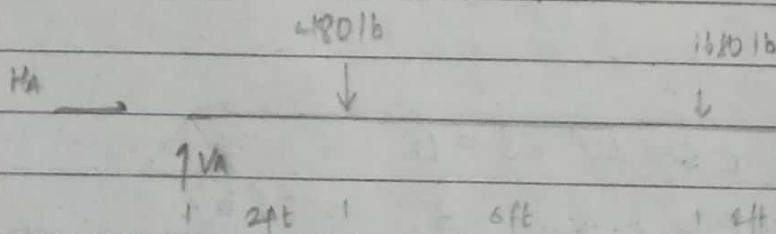 480 lb 1680 lb
HA
VA
2ft 6ft ft